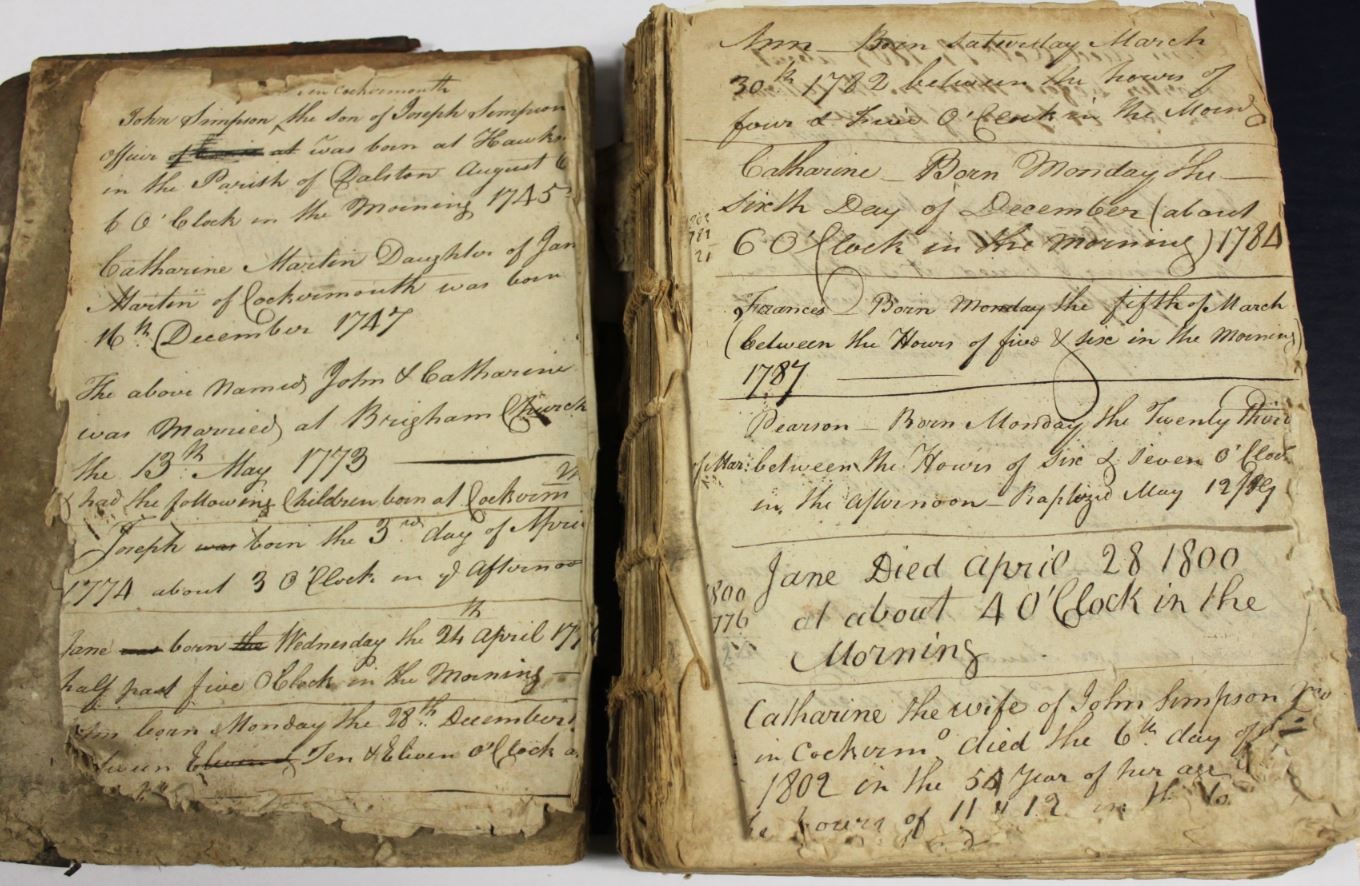 in Cockermouth
John Simpson the son of Joseph Simpson
officer of at was born at Hawks
in the Parish of Dalston August 6
6 O'Clock in the Morning 1745
Catharine Martin Daughter of Jan
Martin of Cockermouth was born
16th December 1747
The above Named John & Catharine
was Married at Brigham Church
the 13th May 1773
had the following Children born at Cockerm
Joseph was born the 3rd day of April
1774 about 3 O'Clock in ye Afternoo
Jane was born the Wednesday the 24th April 17
half past five OClock in the Morning
born Monday the 28th December
Ten & Eleven O'Clock
Ann Born Saturday March
30th 1782 between the hours of
four & Five O'Clock in the Morng
Catharine Born Monday the
Sixth Day of December (about
6 O'Clock in the Morning) 1784
Frances Born Monday the fifth of March
(between the Hours of five & six in the Morning)
1787
Pearson Born Monday the Twenty third
of Mar: between the Hours of Six & Seven O'Clock
in the Afternoon Baptized May 12
Jane Died April 28 1800
1800
776
at about 4 O'Clock in the
Morning
Catharine the wife of John Simpson
in Cockermo died the 6th day of
1802 in the 54 Year of her age
hours of 11 & 12 in the